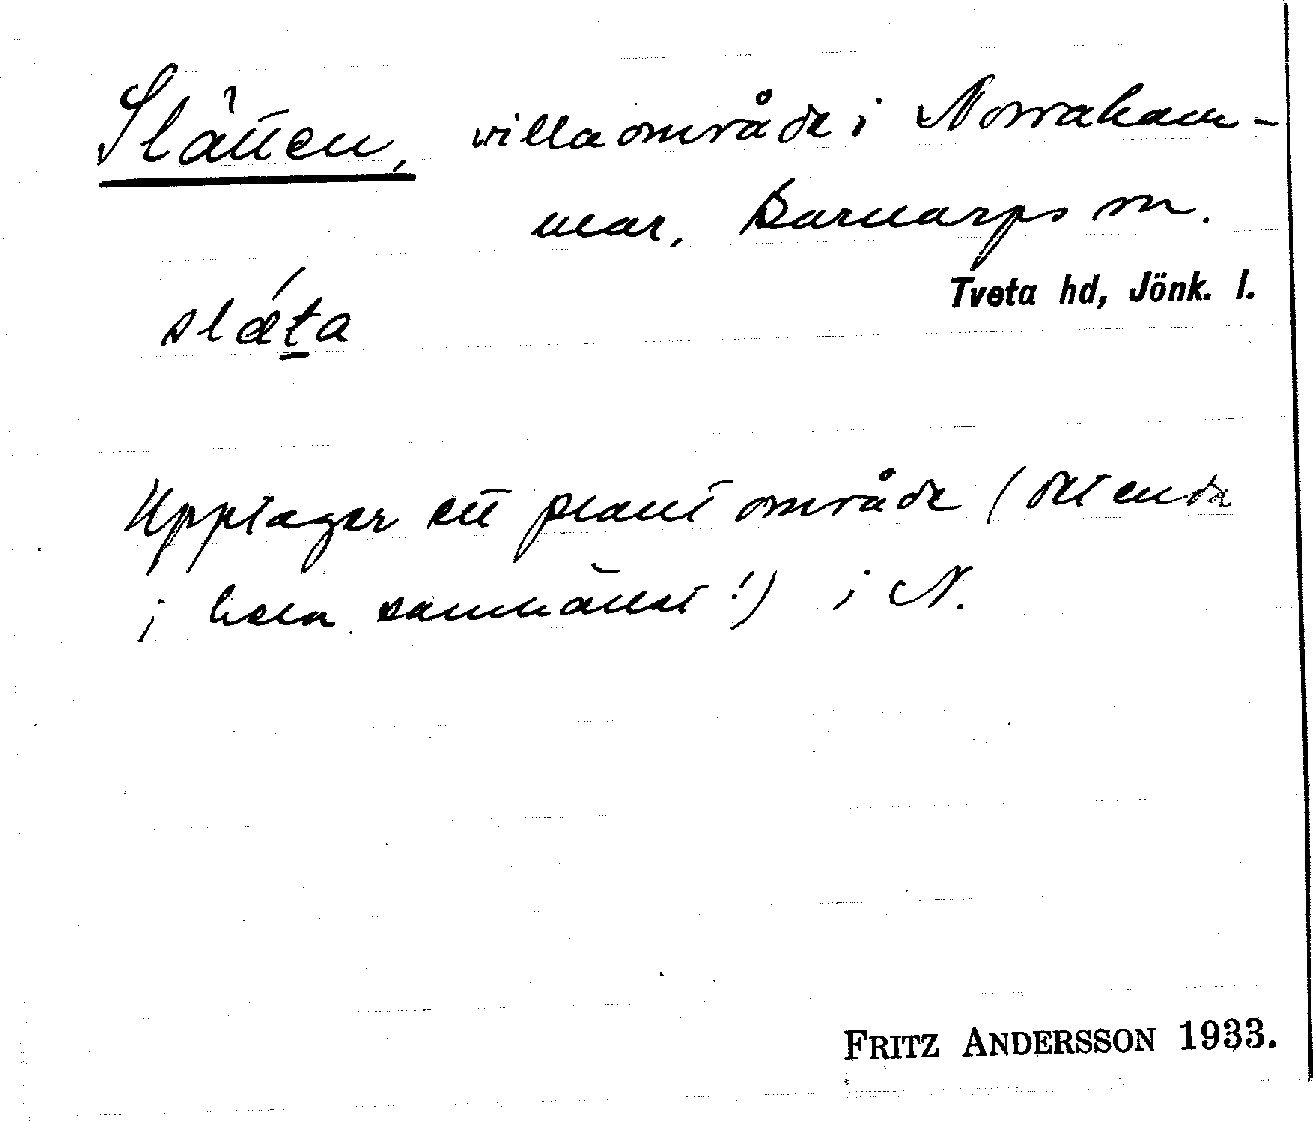 Slätten, villaområde i Norraham-
mar, Barnarps sn.
Tveta hd, Jönk. l.
slǽt̲a
Upptager ett plant område (det enda
i hela samhället!) i N.
FRITZ ANDERSSON 1933.